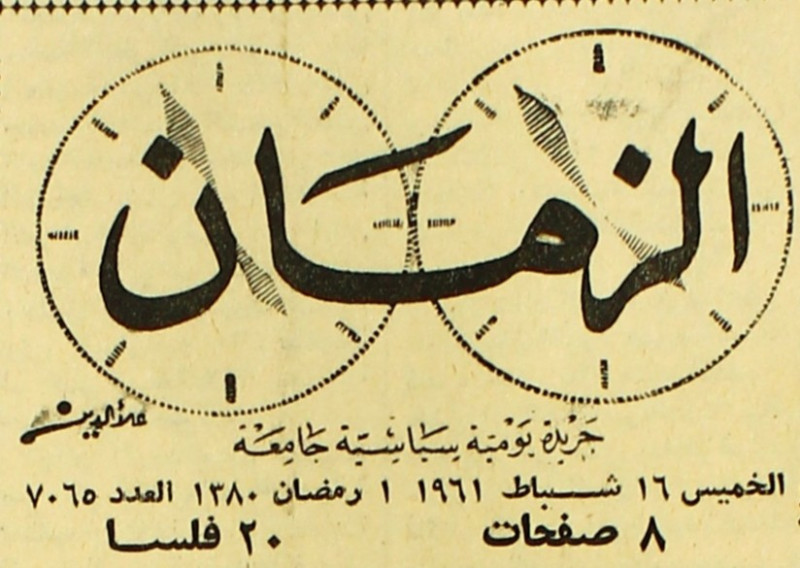 الزمان
علاء الدين
جريدة يومية سياسية جامعة
الخميس ١٦ شباط ١٩٦١ ١ رمضان ١٣٨٠ العدد ٧٠٦٥
٨ صفحات ٢٠ فلسا